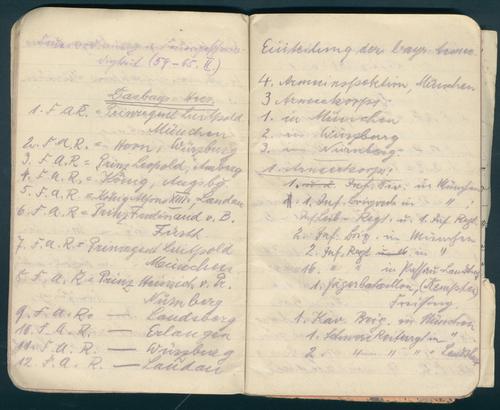 (59-65. II.)
Das bayr. Heer.
1. F. A. R. = Prinzregent Luitpold
München
2. F. A. R. = Horn, Würzburg
3. F. A. R. = Prinz Leopold, Amberg
4. F. A. R. = König, Augsbg
5. F. A. R. = König Alfons XIII., Landau
6. F. A. R. = Prinz Ferdinand v. B.
Fürth
7. F. A. R = Prinzregent Luitpold
München
8. F. A. R. = Prinz Heinrich v. Pr.
Nürnberg
9. F. A. R. — Landsberg
10. F. A. R. — Erlangen
11. F. A. R. — Würzburg
12. F. A. R. — Landau
Einteilung der bayr. Armee
4. Armeeinspektion, München
3 Armeekorps:
1. in München
2. in Würzburg
3. in Nürnberg
1. Armeekorps:
1. Inf. Div. in München
1. Inf. brigade in " :
Inf. Leib-Regt. u. 1. Inf. Regt.
2. Inf. brig. in München
2. Inf. Regt. in "
16. " " in Passau Landshut
1. Jägerbataillon, (Kempten)
Freising
1. Kav. Brig. in München
1. Schwere Reiterregt in "
2. " " " Landshut